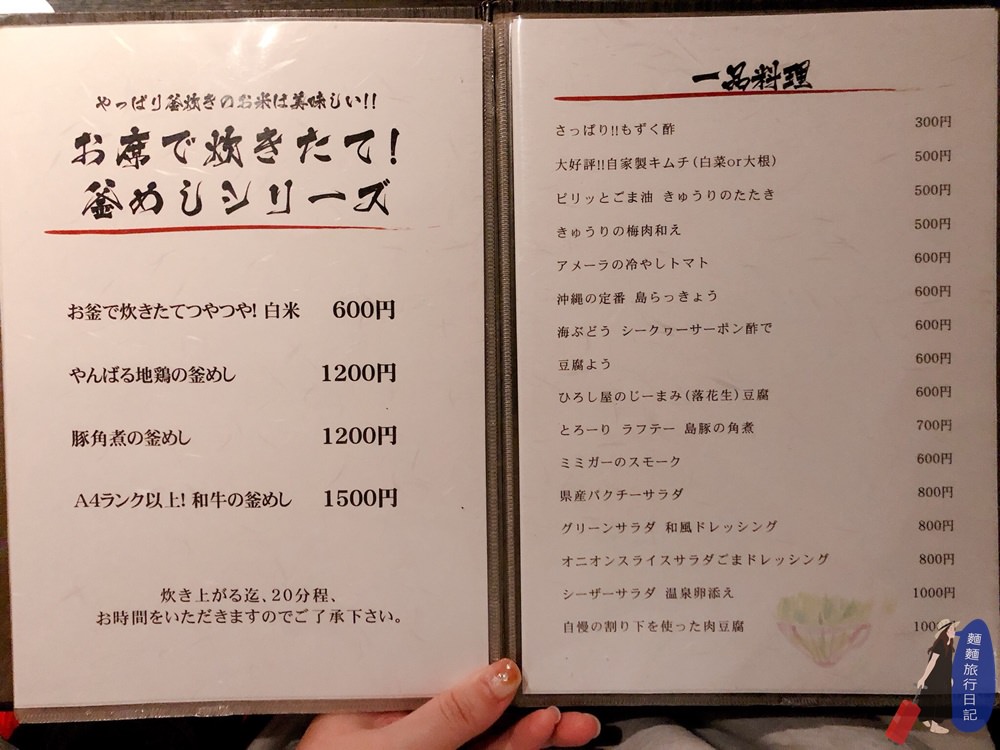 やっぱり釜炊きのお米は美味しい!!
お席で炊きたて!
釜めしシリーズ
お釜で炊きたてつやつや! 白米 600円
やんばる地鶏の釜めし 1200円
豚角煮の釜めし 1200円
A4ランク以上! 和牛の釜めし 1500円
炊き上がる迄、20分程、
お時間をいただきますのでご了承下さい。
一品料理
さっぱり!!もずく酢 300円
大好評!!自家製キムチ(白菜or大根) 500円
ピリッとごま油 きゅうりのたたき 500円
きゅうりの梅肉和え 500円
アメーラの冷やしトマト 600円
沖縄の定番 島らっきょう 600円
海ぶどう シークヮーサーポン酢で 600円
豆腐よう 600円
ひろし屋のじーまみ(落花生)豆腐 600円
とろーり ラフテー 島豚の角煮 700円
ミミガーのスモーク 600円
県産パクチーサラダ 800円
グリーンサラダ 和風ドレッシング 800円
オニオンスライスサラダごまドレッシング 800円
シーザーサラダ 温泉卵添え 1000円
自慢の割り下を使った肉豆腐
麵麵旅行日記